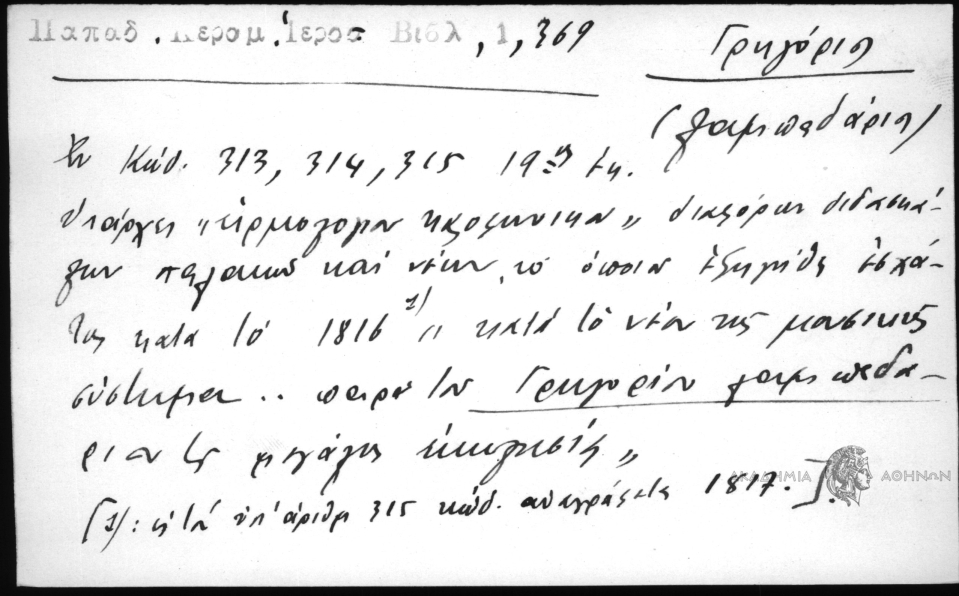 Παπαδ. Κεραμ. Ἱεροσ Βιβλ, 1, 369
Γρηγόριος
(λαμπαδάριος)
Ἐν Κώδ. 313, 314, 315 19ης ἑκ.
ὑπάρχει „εἱρμολόγιον καλοφωνικόν„ διαφόρων διδασκά-
λων παλαιῶν καὶ νέων, τὸ ὁποῖον ἐξηγήθη ἐσχά-
τως κατὰ τὸ 1816 1) „ κατὰ τὸ νέον τῆς μουσικῆς
σύστημα .. παρὰ τοῦ Γρηγορίου λαμπαδα-
ρίου τῆς μεγάλης ἐκκλησίας„
[1): εἰς τὸν ὑπ' ἀριθμ 315 κώδ. ἀναγράφεται 1817.].
ΑΚΑΔΗΜΙΑ ΑΘΗΝΩΝ